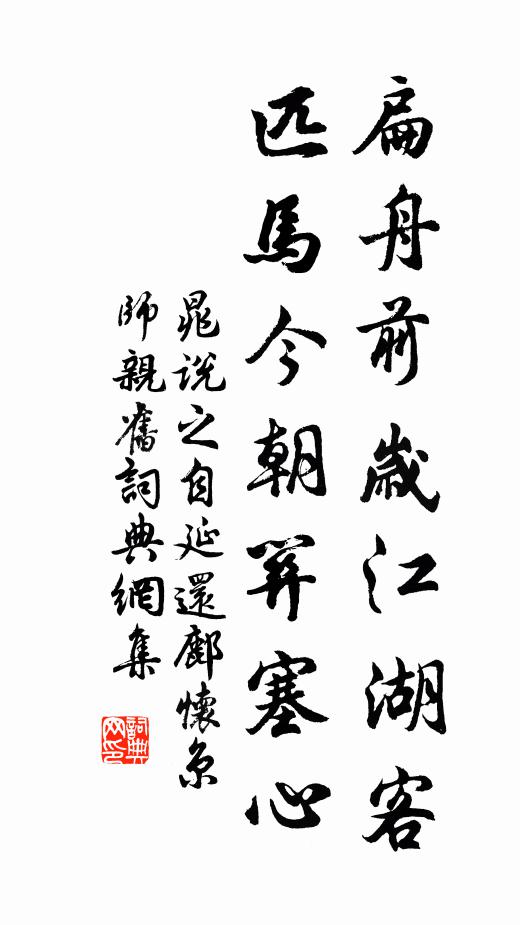 扁舟前歲江湖客
匹馬今朝關塞心
晁說之自延還鄜懷京
師親舊詞典網集
詞典網印